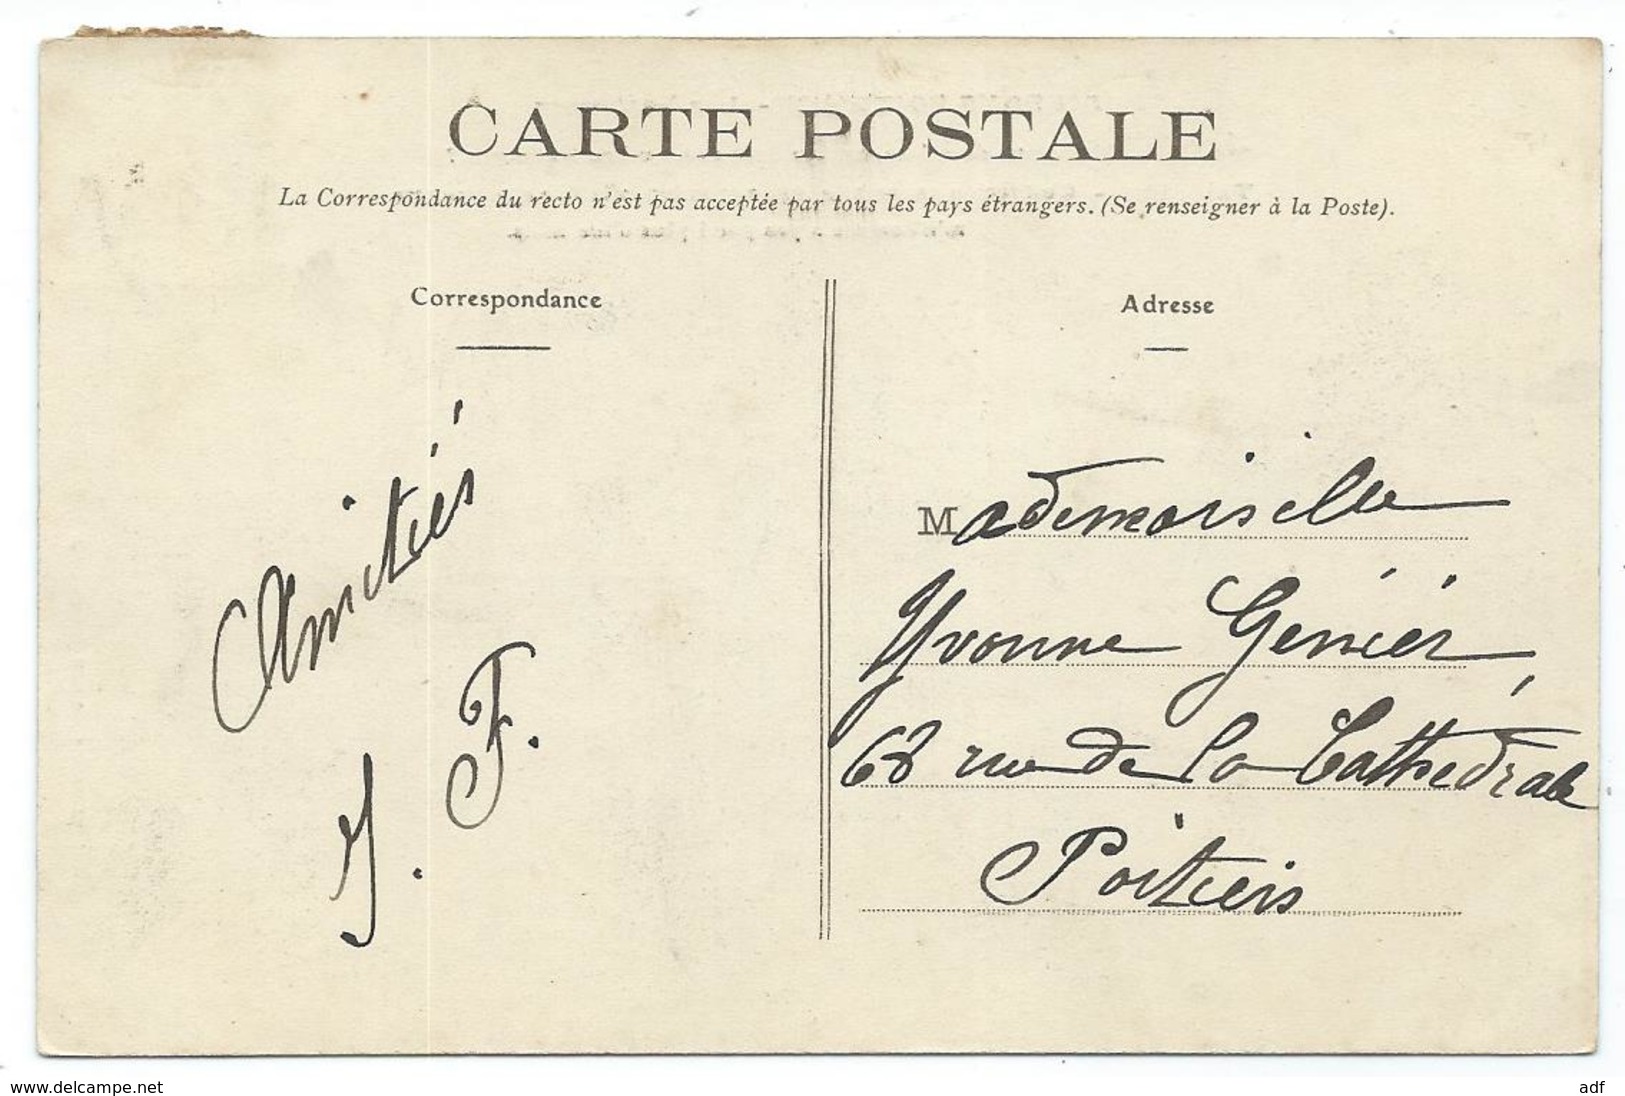 CARTE POSTALE
La Correspondance du recto n'est pas acceptée par tous les pays étrangers. (Se renseigner à la Poste).
Correspondance
Amitiés
J. F.
Adresse
Mademoiselle
Yvonne Génier,
68 rue de la Cathédrale
Poitiers
www.delcampe.net
adf